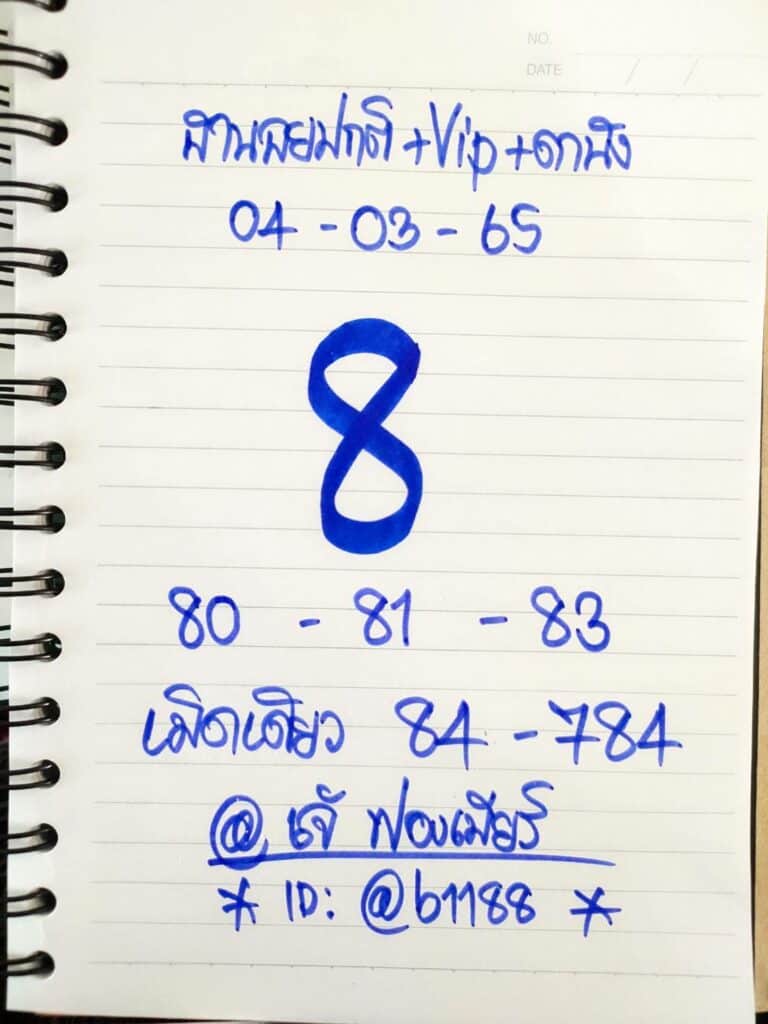 NO.
DATE / /
ฮานอยปกติ+Vip+ดาวัง
04 - 03 - 65
8
80 - 81 - 83
เม็ดเดียว 84 - 784
@ เจ้ ฟองเบียร์
* ID: @b1188 *